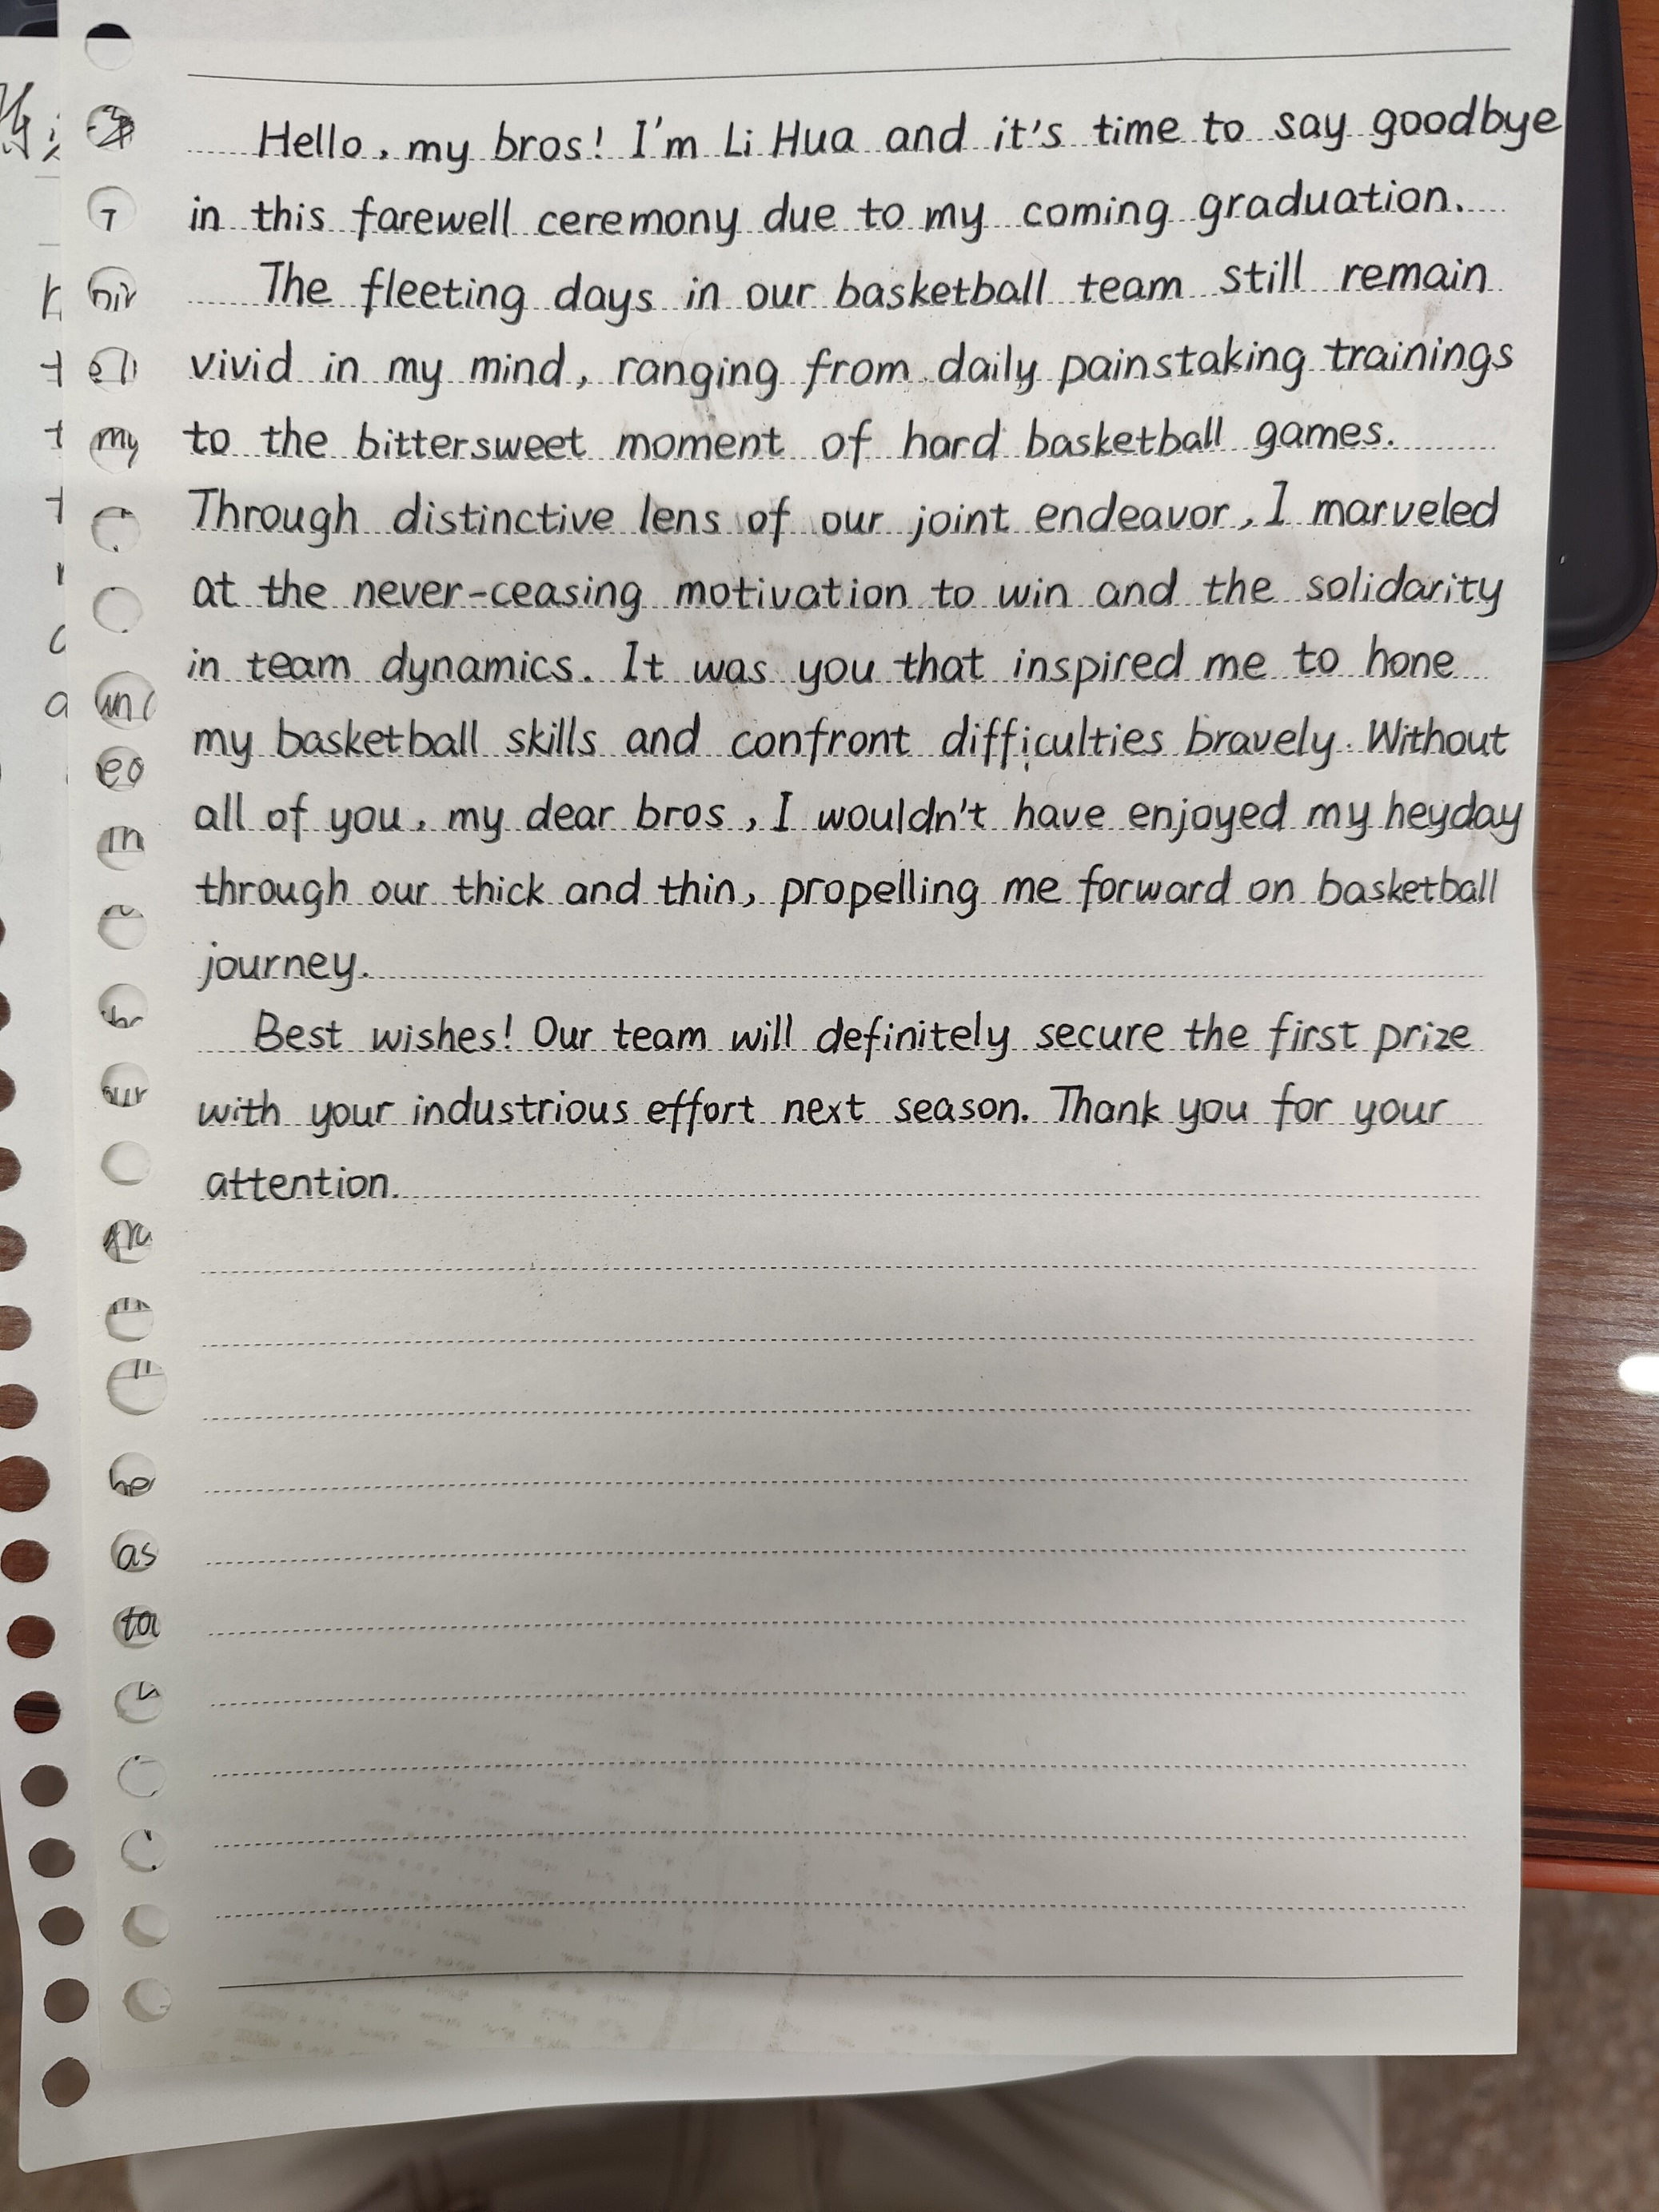 Hello, my bros! I'm Li Hua and it's time to say goodbye
in this farewell ceremony due to my coming graduation.
The fleeting days in our basketball team still remain
vivid in my mind, ranging from daily painstaking trainings
to the bittersweet moment of hard basketball games.
Through distinctive lens of our joint endeavor, I marveled
at the never-ceasing motivation to win and the solidarity
in team dynamics. It was you that inspired me to hone
my basketball skills and confront difficulties bravely. Without
all of you, my dear bros, I wouldn't have enjoyed my heyday
through our thick and thin, propelling me forward on basketball
journey.
Best wishes! Our team will definitely secure the first prize
with your industrious effort next season. Thank you for your
attention.